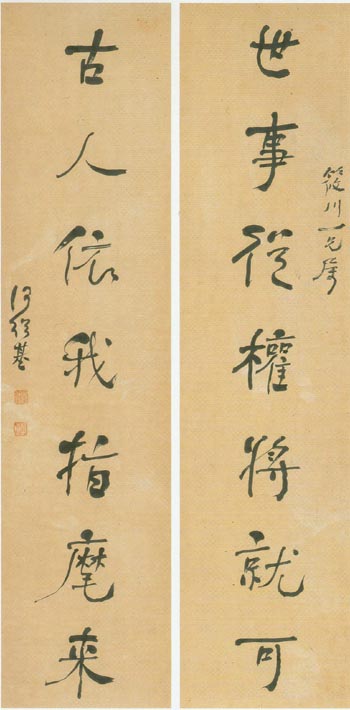 筱川一兄屬
世事從權將就可
古人依我指麾來
何紹基